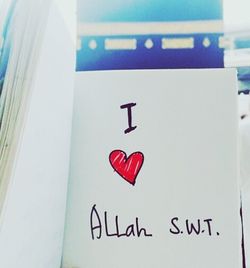 I
Allah S.W.T.